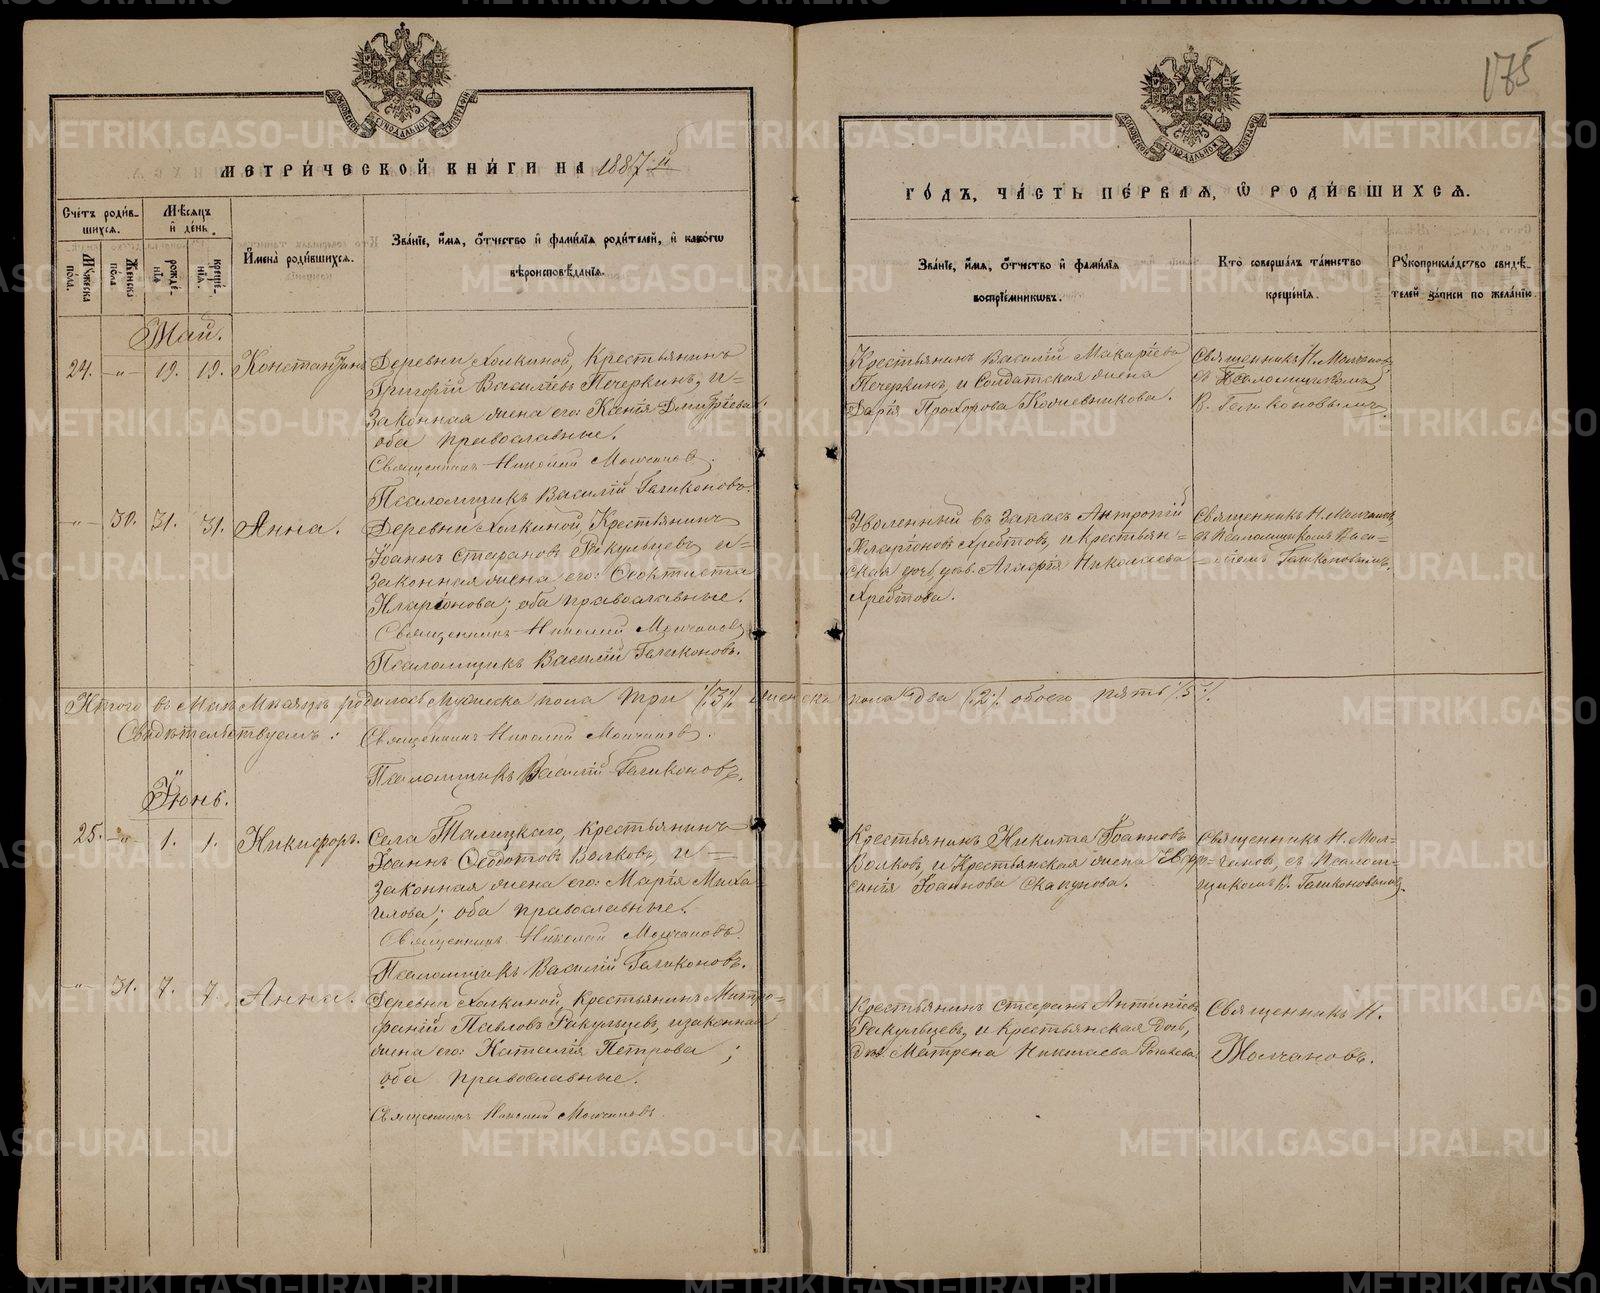 175
МЕТРИ́ЧЕСКОЙ КНИ́ГИ НА 1887 й
ГО́ДЪ, ЧА́СТЬ ПЕ́РВАѦ, Ѡ РОДИ́ВШИХСѦ.
Сче́тъ роди́в-
шихсѧ.
Мѣ́сѧцъ
и҆ де́нь.
И҆мена̀ роди́вшихсѧ.
Зва́нїе, и҆́мѧ, ѻ҆́тчество и҆ фами́лїѧ роди́телей, и҆ како́гѡ
вѣроисповѣ́данїѧ.
Мꙋ́жеска
по́ла.
Же́нска
по́ла
рожде́-
нїѧ
креще́-
нїѧ.
Зва́нїе, и҆́мѧ, ѻ҆́тчество и҆ фами́лїѧ
воспрїе́мникѡвъ.
Кто̀ соверша́лъ та́инство
креще́нїѧ.
Рꙋкоприкла́дство свидѣ́-
телей за́писи по жела́нїю.
Май.
24. -"- 19. 19. Константинъ
Деревни Холкиной, Крестьянинъ
Григорій Василіевъ Печеркинъ, и
законная жена его: Ксенія Димитріева
оба православные.
Священникъ Николай Молчановъ.
Псаломщикъ Василій Галиконовъ.
Крестьянинъ Василій Макаріевъ
Печеркинъ, и Солдатская жена
Дарія Прохорова Кочевникова.
Священникъ Н. Молчановъ
съ Псаломщикомъ
В. Галиконовымъ.
-"- 30. 31. 31. Анна.
Деревни Холкиной, Крестьянинъ
Іоаннъ Стефановъ Ракульцевъ и
законная жена его: Ѳеоктиста
Иларіонова; оба православные.
Священникъ Николай Молчановъ
Псаломщикъ Василій Галиконовъ.
Уволенный въ Запасъ
Иларіоновъ Хребтовъ, и крестьян-
ская дочь, дѣв. Агафія Николаева
Хребтова.
Священникъ Н. Молчановъ,
съ Псаломщикомъ Васи-
ліемъ Галиконовымъ.
Итого въ Маѣ Мѣсяцѣ родилось Мужеска пола три /3/, женска пола два /2/ обоего пять /5/.
Свидѣтельствуемъ: Священникъ Николай Молчановъ.
Псаломщикъ Василій Галиконовъ.
Іюнь.
25. -"- 1. 1. Никифоръ.
Села Талицкаго, Крестьянинъ
Іоаннъ Ѳеодотовъ Волковъ, и
законная жена его: Марія Миха-
илова; оба православные.
Священникъ Николай Молчановъ.
Псаломщикъ Василій Галиконовъ.
Крестьянинъ Никита Іоанновъ
Волковъ, и Крестьянская жена Евфро-
синія Іоаннова Скакунова.
Священникъ Н. Мол-
чановъ, съ Псалом-
щикомъ В. Галиконовымъ.
-"- 31. 7. 7. Анна.
Деревни Холкиной, Крестьянинъ Митро-
фаній Павловъ Ракульцевъ, и законная
жена его: Наталія Петрова;
оба православные.
Священникъ Николай Молчановъ.
Крестьянинъ Стефанъ Антипіевъ
Ракульцевъ, и крестьянская дочь,
дѣв. Матрена Николаева
Священникъ Н.
Молчановъ.